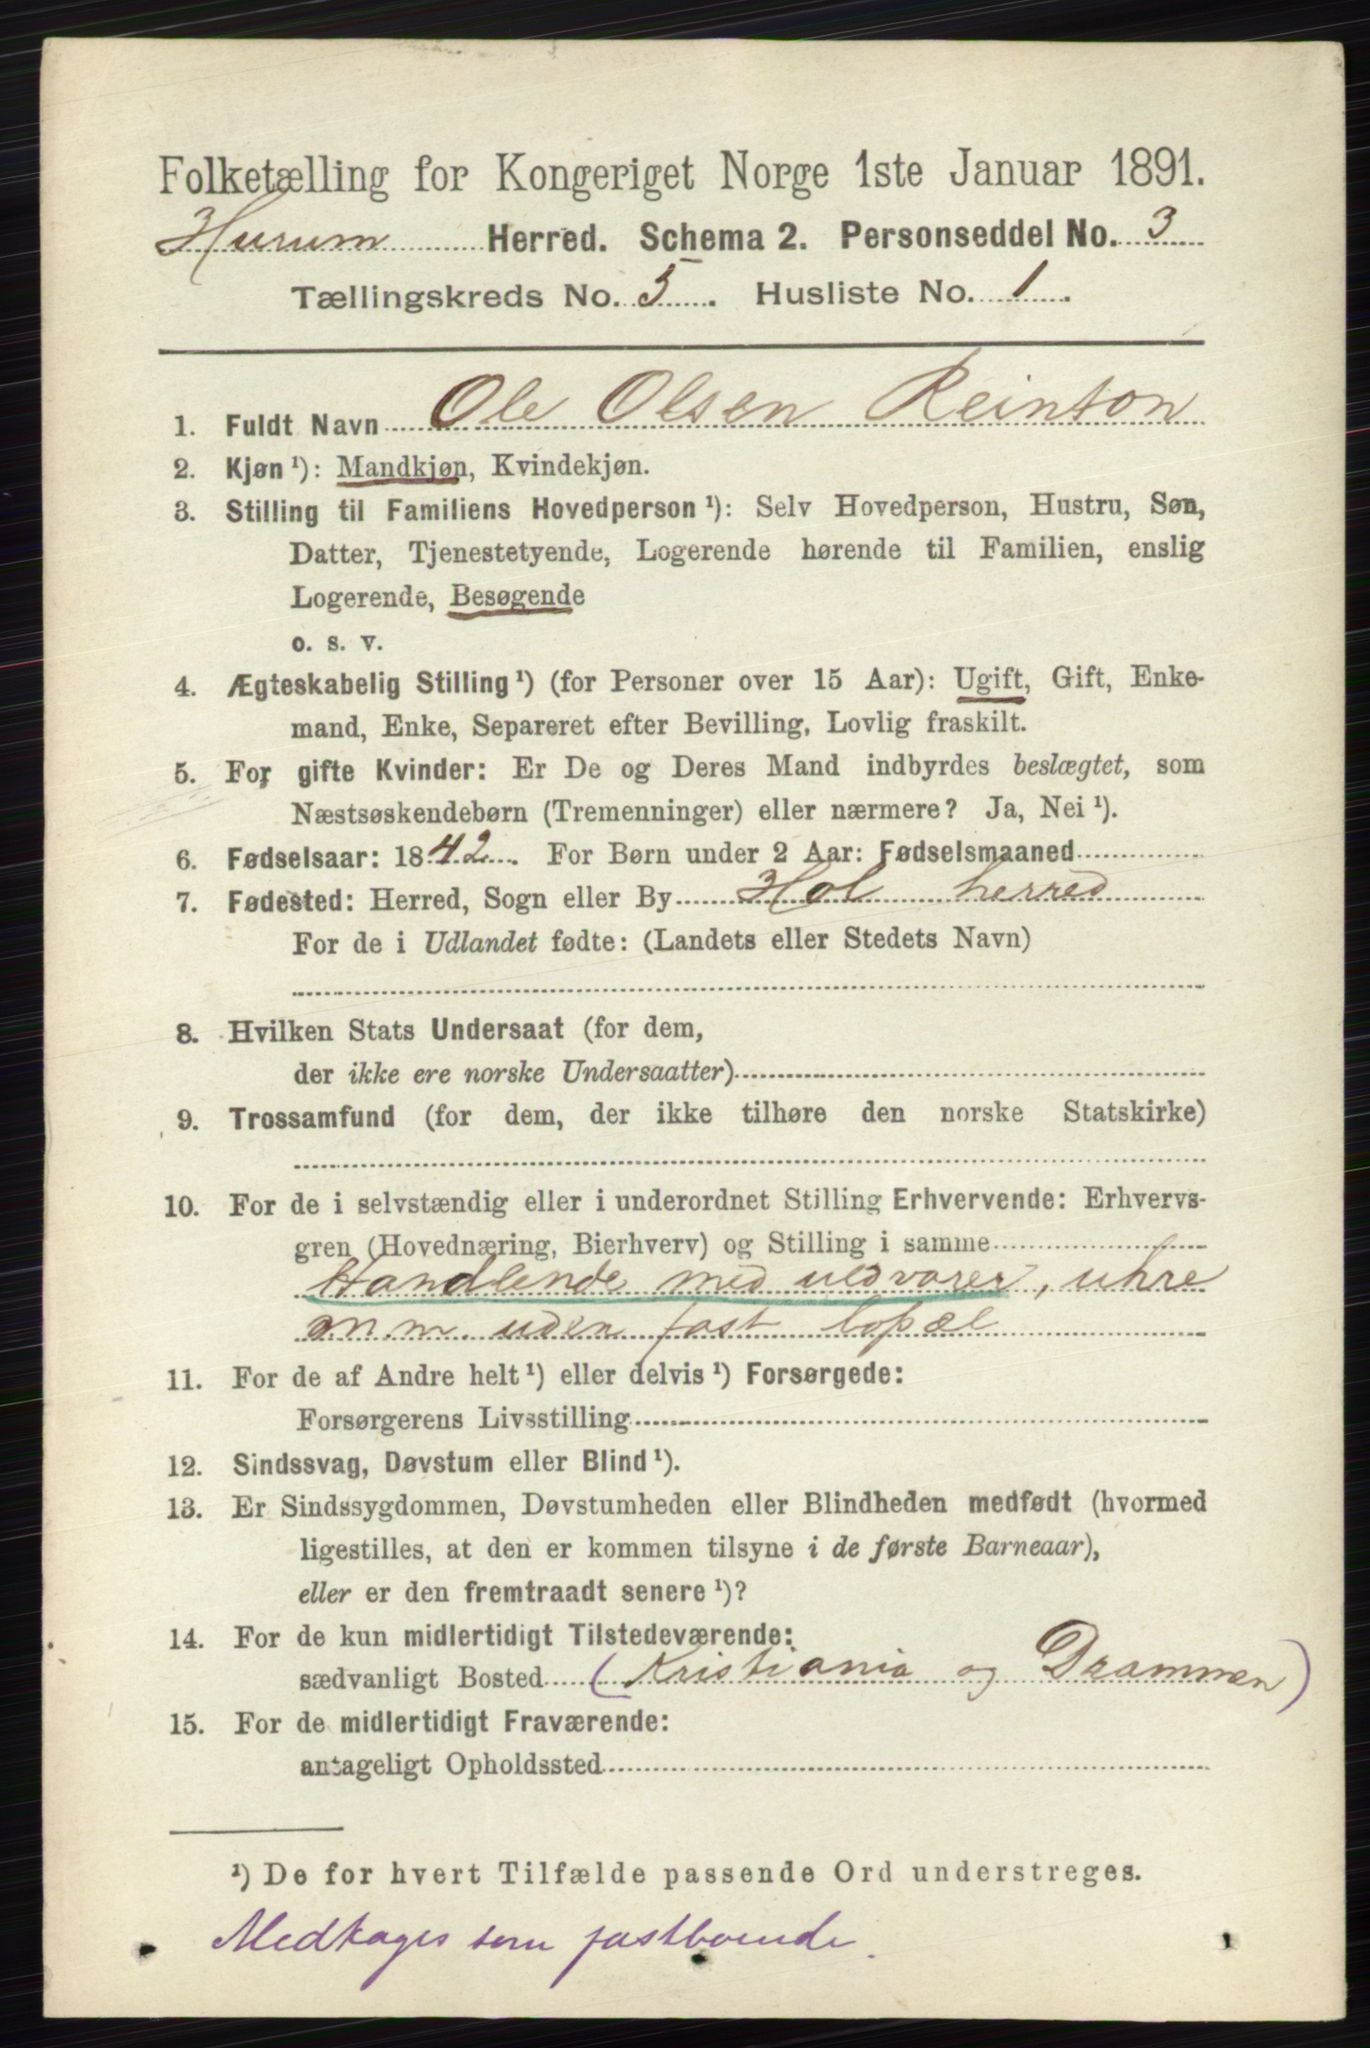 Folketælling for Kongeriget Norge 1ste Januar 1891.
Hurum Herred. Schema 2. Personseddel No. 3
Tællingskreds No. 5. Husliste No. 1.
1. Fuldt Navn Ole Olsen Reinton
2. Kjøn ¹): Mandkjøn, Kvindekjøn.
3. Stilling til Familiens Hovedperson ¹): Selv Hovedperson, Hustru, Søn,
Datter, Tjenestetyende, Logerende hørende til Familien, enslig
Logerende, Besøgende
o. s. v.
4. Ægteskabelig Stilling ¹) (for Personer over 15 Aar): Ugift, Gift, Enke-
mand, Enke, Separeret efter Bevilling, Lovlig fraskilt.
5. For gifte Kvinder: Er De og Deres Mand indbyrdes beslægtet, som
Næstsøskendebørn (Tremenninger) eller nærmere? Ja, Nei ¹).
6. Fødselsaar: 1842. For Børn under 2 Aar: Fødselsmaaned
7. Fødested: Herred, Sogn eller By Hol herred
For de i Udlandet fødte: (Landets eller Stedets Navn)
8. Hvilken Stats Undersaat (for dem,
der ikke ere norske Undersaatter)
9. Trossamfund (for dem, der ikke tilhøre den norske Statskirke)
10. For de i selvstændig eller i underordnet Stilling Erhvervende: Erhvervs-
gren (Hovednæring, Bierhverv) og Stilling i samme
Handlende med uldvarer, uhre
m.m. uden fast bopæl
11. For de af Andre helt ¹) eller delvis ¹) Forsørgede:
Forsørgerens Livsstilling
12. Sindssvag, Døvstum eller Blind ¹).
13. Er Sindssygdommen, Døvstumheden eller Blindheden medfødt (hvormed
ligestilles, at den er kommen tilsyne i de første Barneaar),
eller er den fremtraadt senere ¹)?
14. For de kun midlertidigt Tilstedeværende:
sædvanligt Bosted (Kristiania og Drammen)
15. For de midlertidigt Fraværende:
antageligt Opholdssted
¹) De for hvert Tilfælde passende Ord understreges.
Medtages som fastboende.